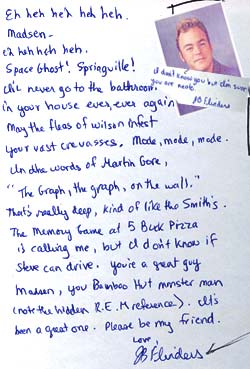 Eh heh heh heh heh.
Madsen-
eh heh heh heh.
Space Ghost! Springville!
I'll never go to the bathroom
in your house ever, ever again
May the fleas of wilson infest
your vast crevasses. Mode, mode, mode.
In the words of Martin Gore,
"The Graph, the graph, on the wall."
That's really deep, kind of like the Smith's.
The Memory Game at 5 Buck Pizza
is calling me, but I don't know if
Steve can drive. you're a great guy
Madsen, you Bamboo Hut monster man
(note the hidden R.E.M reference). It's
been a great one. Please be my friend.
Love,
JB Flinders
I don't know you but I'm sure
you are neat.
JB Flinders